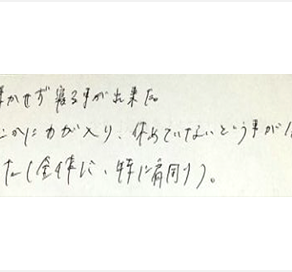 かせず寝る事が出来た。
かに力が入り、休めていないという事が
た(全体に、特に肩周り)。